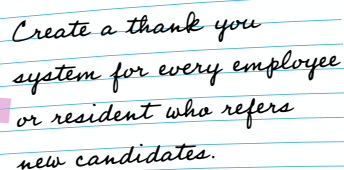 Create a thank you
system for every employee
or resident who refers
new candidates.